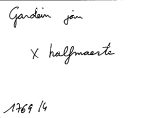 Gardein jan
x halfmaerte
1769/4